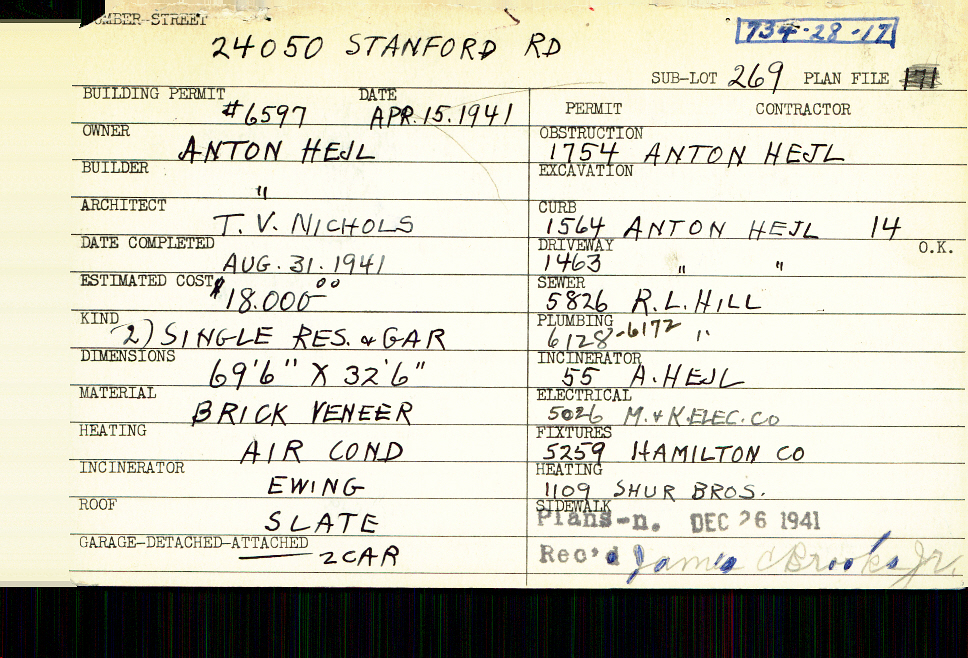 NUMBER-STREET
24050 STANFORD RD
734-28-17
SUB-LOT 269 PLAN FILE 171
BUILDING PERMIT DATE
#6597 APR.15.1941
OWNER
ANTON HEJL
BUILDER
"
ARCHITECT
T. V. NICHOLS
DATE COMPLETED
AUG. 31. 1941
ESTIMATED COST
$18.000 00
KIND
2) SINGLE RES. & GAR
DIMENSIONS
69'6" X 32'6"
MATERIAL
BRICK VENEER
HEATING
AIR COND
INCINERATOR
EWING
ROOF
SLATE
GARAGE-DETACHED-ATTACHED
2 CAR
PERMIT CONTRACTOR
OBSTRUCTION
1754 ANTON HEJL
EXCAVATION
CURB
1564 ANTON HEJL 14
DRIVEWAY O.K.
1463 " "
SEWER
5826 R.L. HILL
PLUMBING
6128-6172 "
INCINERATOR
55 A. HEJL
ELECTRICAL
5026 M. & K. ELEC. CO
FIXTURES
5259 HAMILTON CO
HEATING
1109 SHUR BROS.
SIDEWALK
Plans-n. DEC 26 1941
Rec'd James C Brooks Jr.